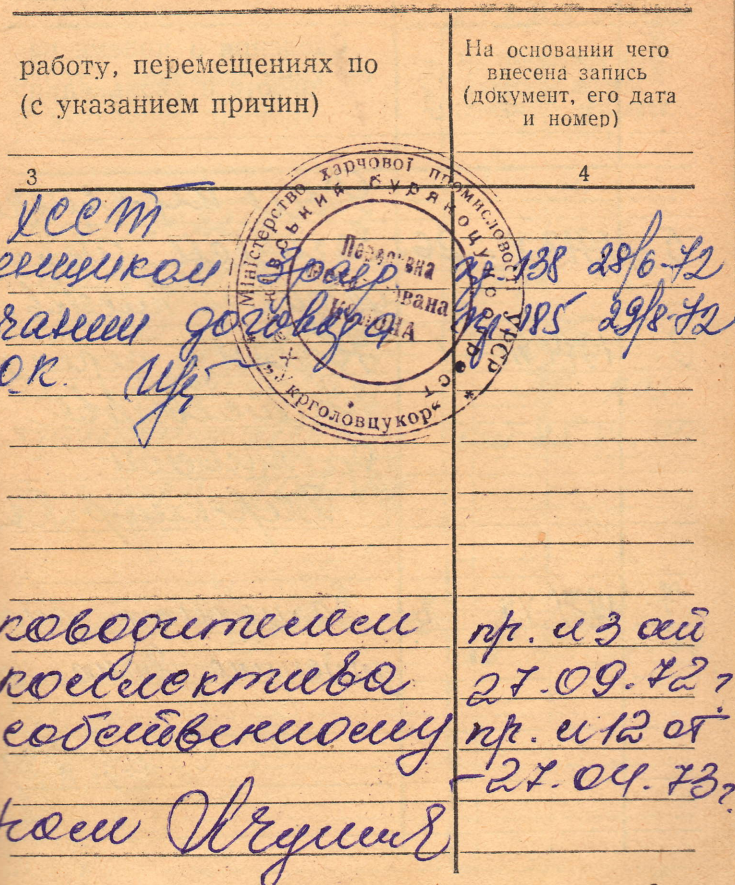 работу, перемещениях по
(с указанием причин)
На основании чего
внесена запись
(документ, его дата
и номер)
3
4
ХССТ
енщиком
138 28/6-72
чании договора
185 29/8-72
ок.
Міністерство харчової промисловості УРСР
„Укрголовцукор“
Пересувна
КОЛОНА
ководителем
пр. н 3 от
коллектива
27.09.72г
собственному
пр. н 12 от
27.04.73г